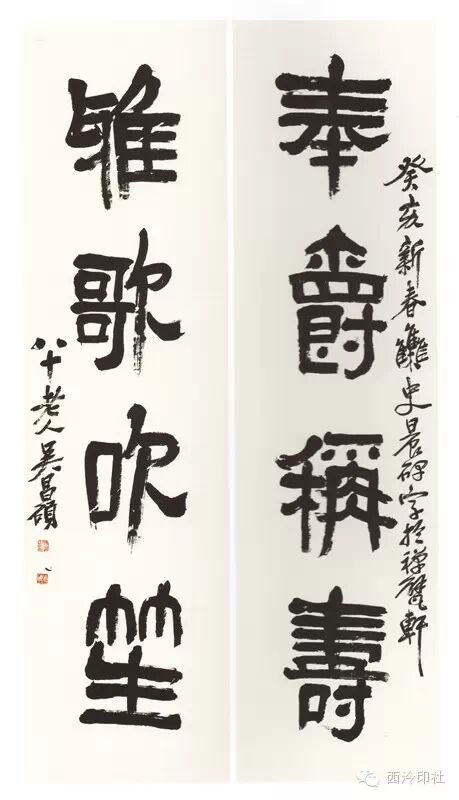 癸亥新春雧史晨碑字於禪甓軒
奉爵稱壽
雅歌吹笙
八十老人吳昌碩
西泠印社